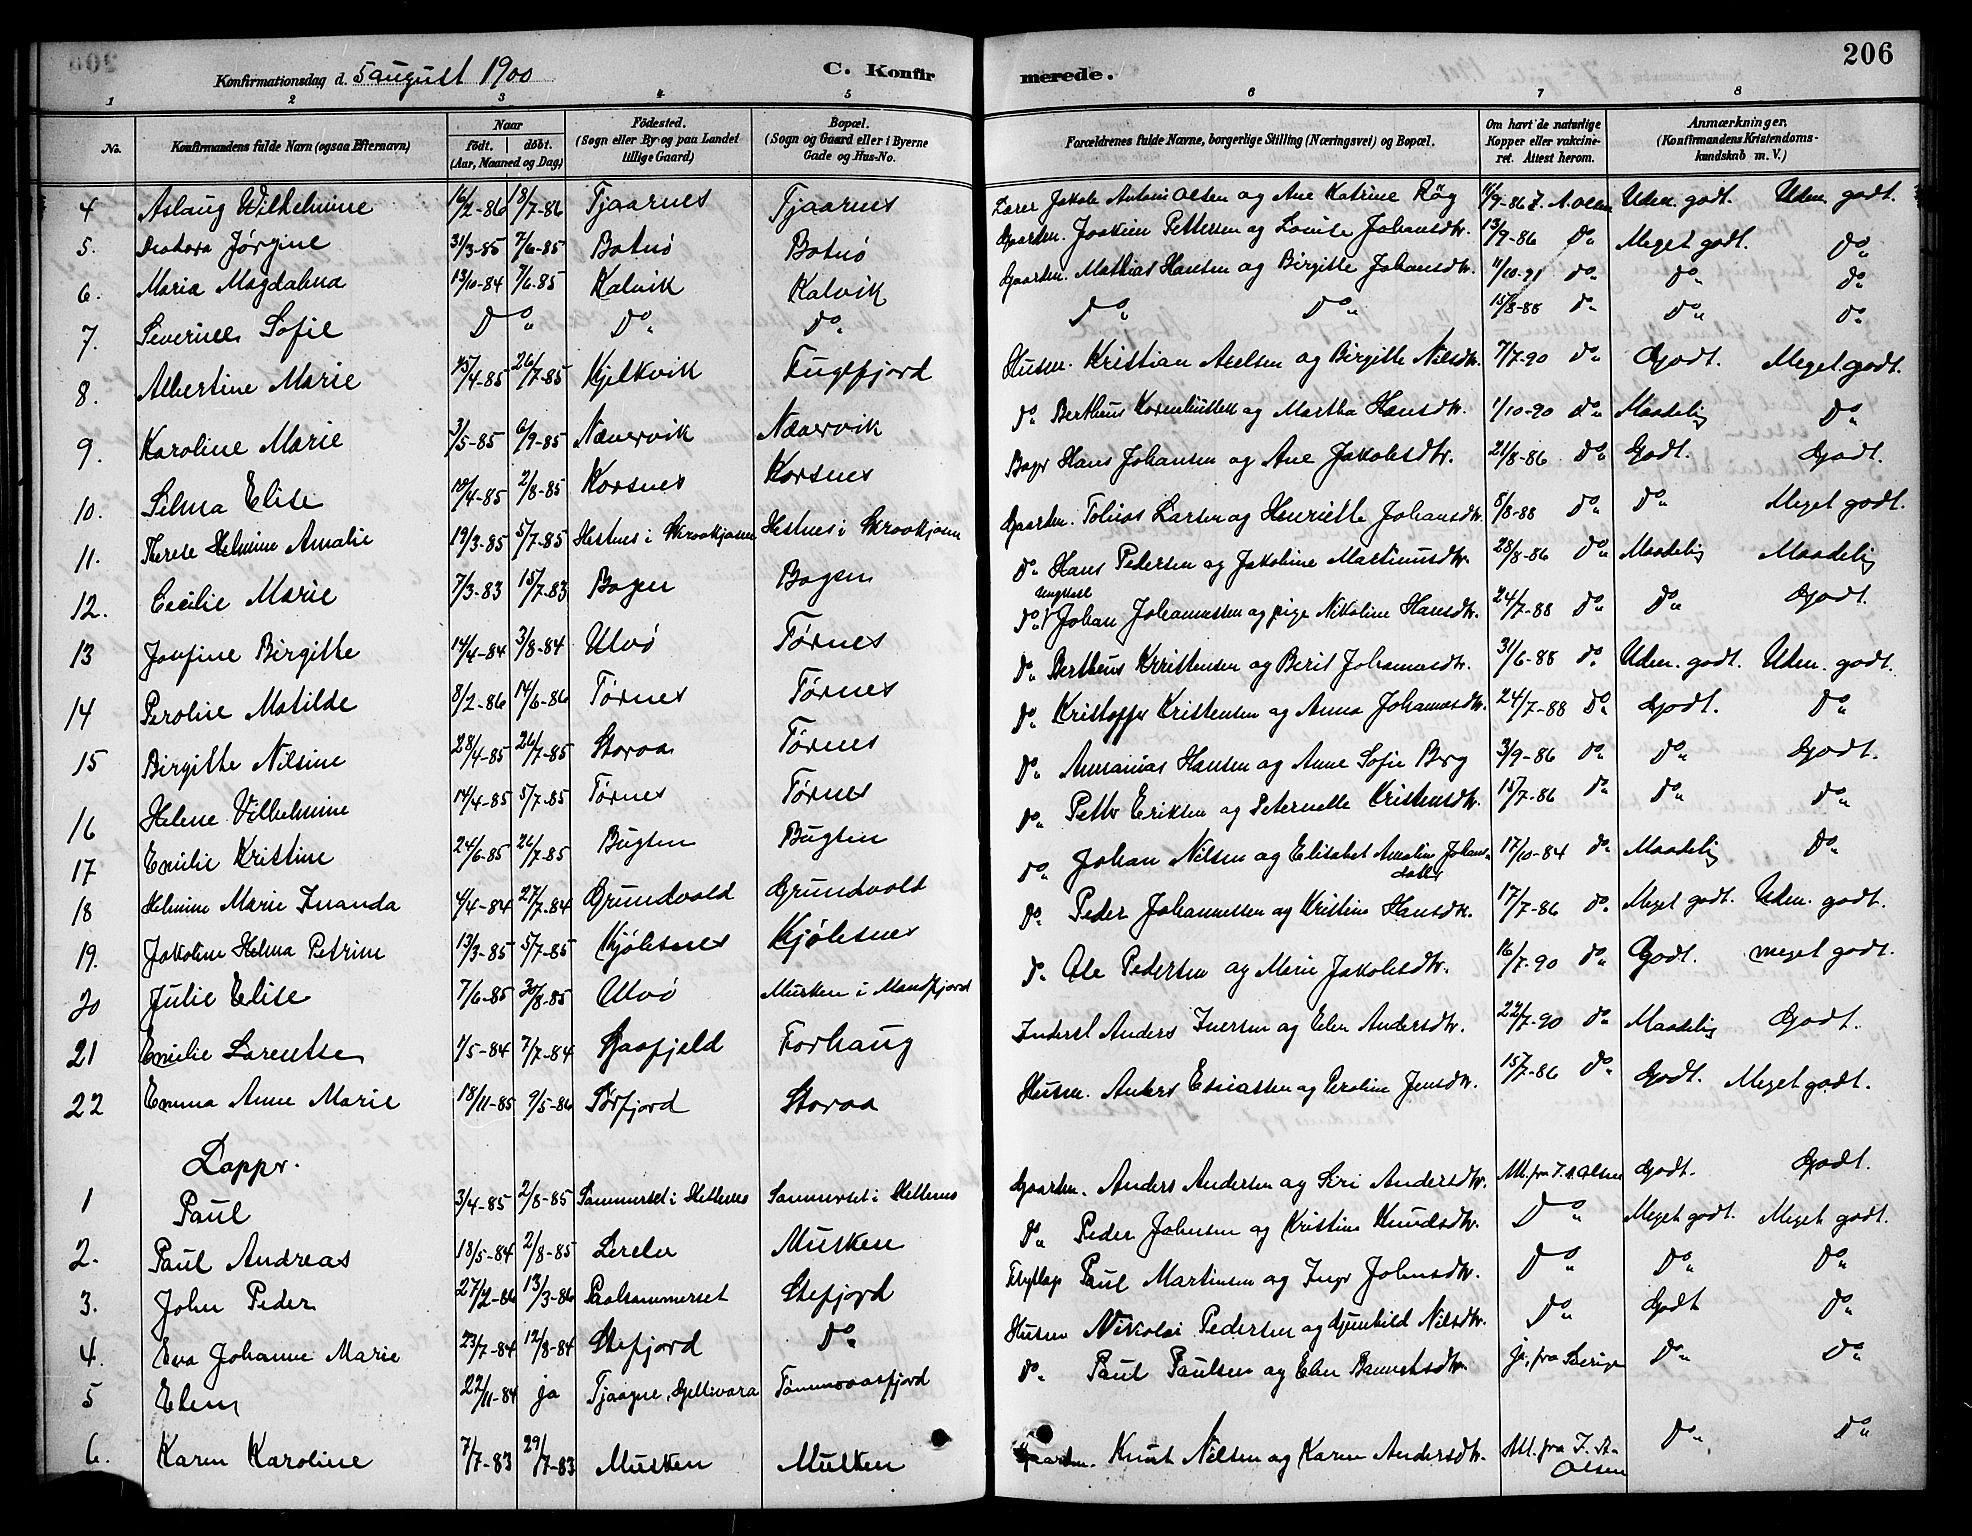 206
Konfirmationsdag d. 5 august 1900 C. Konfirmerede.
1 2 3 4 5 6 7 8
No. Konfirmandens fulde Navn (ogsaa Efternavn) Naar født. døbt. (Aar, Maaned og Dag) Fødested. (Sogn eller By og paa Landet tillige Gaard) Bopæl. (Sogn og Gaard eller i Byerne Gade og Hus-No. Forældrenes fulde Navne, borgerlige Stilling (Næringsvei) og Bopæl. Om havt de naturlige Kopper eller vakcineret. Attest herom. Anmærkninger. (Konfirmandens Kristendomskundskab m. V.)
4 Aslaug Wilhelmine 16/2-86 18/7-86 Tjaarnes Tjaarnes Lærer Jakob Antoni Olsen og Ane Katrine Røg 11/9-86 J. A. Olsen Uden. godt. Uden. godt.
5. Jørgine 31/3-85 7/6-85 Botnø Botnø Gaardm. Joakim Pettersen og Lovise Johansdtr. 13/9-86 Do Meget godt. Do
6. Maria Magdalena 13/10-84 7/6-85 Kalvik Kalvik Gaardm. Mathias Hansen og Birgitte Johansdtr. 11/10-91 do Do Do
7. Severine Sofie Do Do Do Do Do 15/8-88 do Do Do
8. Albertine Marie 15/4-85 26/7-85 Kjelkvik Fuglfjord Husm. Kristian Axelsen og Birgitte Nilsdtr. 7/7-90 do Godt. Meget godt.
9. Karoline Marie 3/5-85 6/9-85 Nævervik Nævervik Do Bertheus Korneliussen og Martha Hansdtr. 1/10-90 do Maadelig Do
10. Selma Elise 10/4-85 2/8-85 Korsnes Korsnes Hans Johansen og Ane Jakobsdtr. 21/8-86 Do Godt. Godt.
11. Therese Helmine Amalie 19/3-85 5/7-85 Hestnes i Skrovkjosen Hestnes i Skrovkjosen Gaardm. Tobias Larsen og Henriette Johansdtr. 8/8-88 Do Do Meget godt.
12. Cecilie Marie 7/3-83 15/7-83 Bogen Bogen Do Hans Pedersen og Jakobine Martinusdtr. 28/8-86 Do Maadelig Maadelig
13 Josefine Birgitte 14/4-84 3/8-84 Ulvø Tørnes Do ungkarl Johan Johannessen og pige Nikoline Hansdtr. 24/7-88 Do Do Godt.
14 Peroline Matilde 8/2-86 14/6-86 Tørnes Tørnes Do Bertheus Kristensen og Berit Johannesdtr. 31/6-88 do Uden. godt. Uden. godt.
15 Birgitte Nilsine 28/4-85 26/7-85 Storaa Tørnes Do Kristoffer Kristensen og Anna Johannesdtr. 24/7-88 Do Godt. Do
16 Helene Vilhelmine 14/4-85 5/7-85 Tørnes Tørnes Do Annanias Hansen og Anne Sofie Berg 3/9-86 do Do Godt.
17 Emilie Kristine 24/6-85 26/7-85 Bugten Bugten Do Petter Eriksen og Peternelle Kristensdtr. 15/7-86 do Do Do
18 Helmine Marie Inanda 4/4-84 27/7-84 Grundvold Grundvold Do Johan Nilsen og Elisabet Amaline Johansdatter 17/10-84 do Maadelig Do
19. Jakobine Helma Petrine 13/3-85 5/7-85 Kjøbsnes Kjøbsnes Do Peder Johannessen og Kristine Hansdtr. 17/7-86 do Meget godt. Uden. godt.
20 Julie Elise 7/6-85 30/8-85 Ulvø Musken i Mandfjord Do Ole Pedersen og Marie Jakobsdtr. 16/7-90 do Godt. meget godt.
21 Emilie Lorentse 1/5-84 7/7-84 Forhaug Inderst Anders Iversen og Elen Andersdtr. 22/7-90 do Maadelig Godt.
22 Emma Anne Marie 18/11-85 9/5-86 Tørfjord Storaa Husm. Anders Esaiassen og Peroline Jensdtr. 15/7-86 Do Godt. Meget godt.
Lapper.
1 Paul 3/4-85 2/8-85 Sommerset i Hellemo Sommerset i Hellemo Gaardm. Anders Andersen og Siri Andersdtr. Att. fra J. A. Olsen Godt. Godt.
2. Paul Andreas 18/5-84 2/8-85 Musken Do Peder Johnsen og Kristine Knudsdtr. Do Meget godt. Meget godt.
3. John Peder 27/2-86 13/3-86 Paalsommerset Stefjord Flytlap Paul Martinsen og Inger Johnsdtr. Do Do Do
4. Eva Johanne Marie 23/7-84 12/8-84 Stefjord Do Husm Nikolai Pedersen og Gjunhild Nilsdtr. Do Godt Do
5 Elen 22/11-84 ja Tjaagne, Gellivara Tømmeraasfjord Do Paul Paulsen og Elen Jannetsdtr. ja, fra Serige Do Do
6. Karen Karoline 7/7-83 29/7-83 Musken Musken Gaardm. Knut Nilsen og Karen Andersdtr. Att. fra J. A. Olsen Do Do